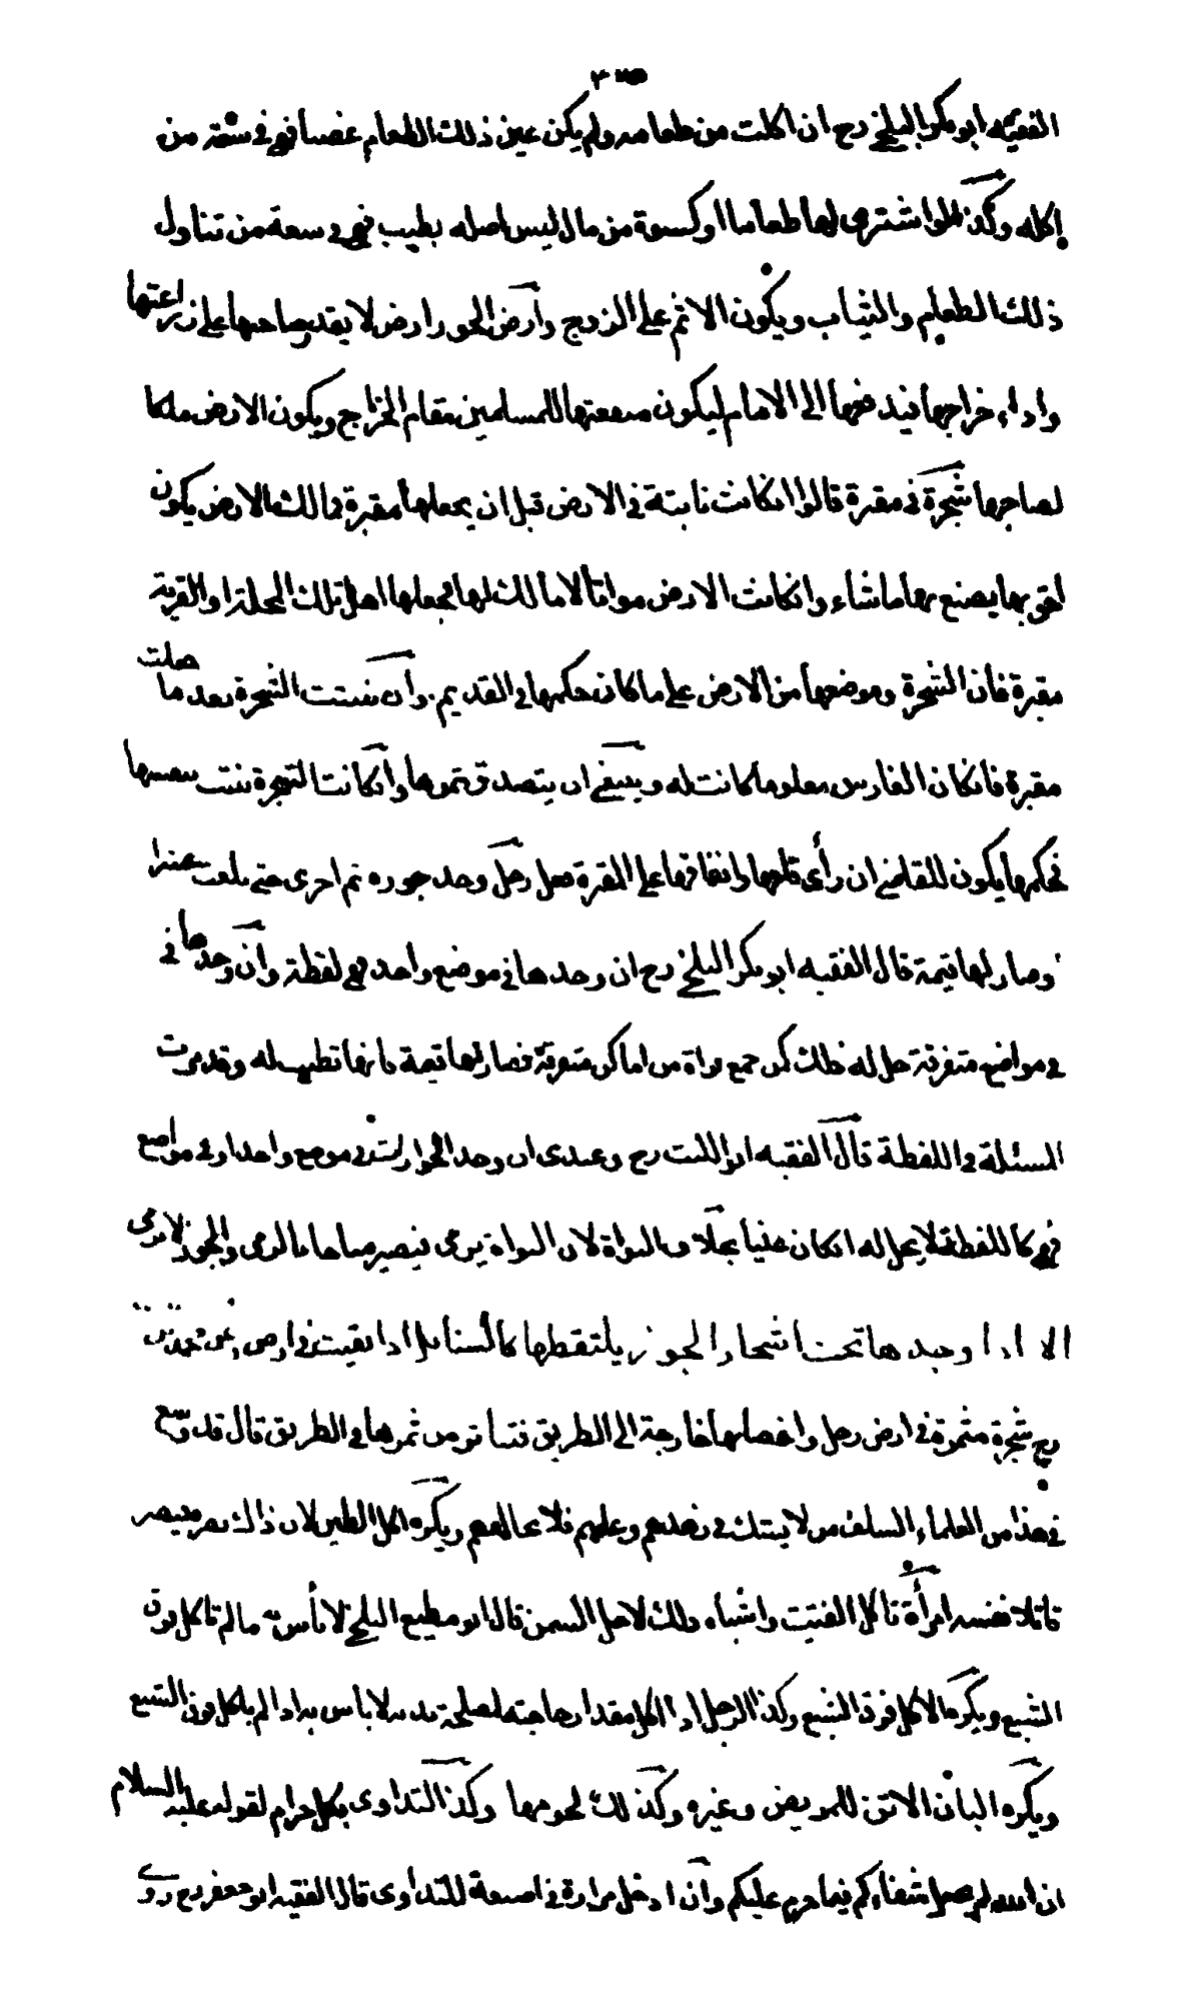 الفقيه ابو بكر البلخي رح ان اكلت من طعامه ولم يكن عين ذلك الطعام غصبا فهي في سعة من
اكله وكذا لو اشترى لها طعاما او كسوة من مال ليس اصله بطيب فهي في سعة من تناول
ذلك الطعام والثياب ويكون الاثم على الزوج وارض الجور ارض لا يقدر صاحبها على زراعتها
واداء خراجها فيدفعها الى الامام ليكون منفعتها للمسلمين مقام الخراج ويكون الارض ملكا
لصاحبها شجرة في مقبرة قالوا انكانت نابتة في الارض قبل ان يجعلها مقبرة فمالك الارض يكون
احق بها يصنع بها ما شاء وانكانت الارض مواتا لا مالك لها فجعلها اهل تلك المحلة او القرية
مقبرة فان الشجرة وموضعها من الارض على ما كان حكمها في القديم وان نبتت الشجرة بعد ما جعلت
مقبرة فانكان الغارس معلوما كانت له وينبغي ان يتصدق بثمرها وانكانت الشجرة نبتت بنفسها
فحكمها يكون للقاضي ان رأى قلعها وانفاقها على المقبرة فعل رجل وجد جوزة ثم اخرى حتى بلغت عشرا
وصار لها قيمة قال الفقيه ابو بكر البلخي رح ان وجدها في موضع واحد فهي لقطة وان وجدها في
في مواضع متفرقة حل له ذلك كمن جمع نواة من اماكن متفرقة فصار لها قيمة فانها تطيب له وقد مرت
المسئلة في اللقطة قال الفقيه ابو الليث رح وعندي ان وجد الجوز في موضع واحد او في مواضع
فهي كاللقطة لا يحل له انكان غنيا بخلاف النواة لان النواة يرمى فيصير مباحا بالرمي والجوز لا يرمى
الا اذا وجدها تحت اشجار الجوز يلتقطها كالسنابل اذا بقيت في ارض
رح شجرة مثمرة في ارض رجل واغصانها خارجة الى الطريق فتناثر من ثمرها في الطريق قال قد وسع
في هذا من العلماء السلف من لا يشك في زهدهم وعلمهم فلا نخالفهم ويكره اكل الطين لان ذلك يضر فيصير
قاتلا نفسه امرأة تأكل الفتيت واشباه ذلك لاجل السمن قال ابو مطيع البلخي لا بأس به ما لم تاكل فوق
الشبع ويكره الاكل فوق الشبع وكذا الرجل اذا اكل مقدار حاجته لمصلحة بدنه لا بأس به اذا لم ياكل فوق الشبع
ويكره البان الاتن للمريض وغيره وكذلك لحومها وكذا التداوي بكل حرام لقوله عليه السلام
ان الله لم يجعل شفاءكم فيما حرم عليكم وان ادخل مرارة في اصبعه للتداوي قال الفقيه ابو جعفر رح روي